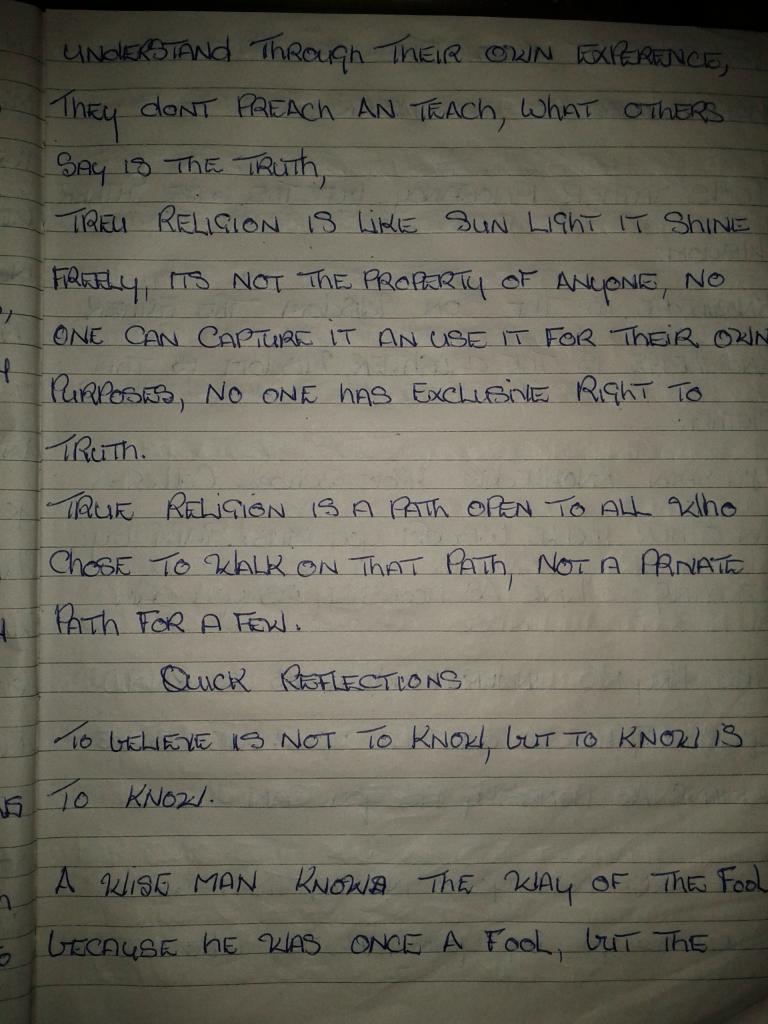 UNDERSTAND THROUGH THEIR OWN EXPERENCE,
THEY DONT PREACH AN TEACH, WHAT OTHERS
SAY IS THE TRUTH,
TREU RELIGION IS LIKE SUN LIGHT IT SHINE
FREELY, ITS NOT THE PROPERTY OF ANYONE, NO
ONE CAN CAPTURE IT AN USE IT FOR THEIR OWN
PURPOSES, NO ONE HAS EXCLUSIVE RIGHT TO
TRUTH.
TRUE RELIGION IS A PATH OPEN TO ALL WHO
CHOSE TO WALK ON THAT PATH, NOT A PRIVATE
PATH FOR A FEW.
QUICK REFLECTIONS
TO BELIEVE IS NOT TO KNOW, BUT TO KNOW IS
TO KNOW.
A WISE MAN KNOWS THE WAY OF THE FOOL
BECAUSE HE WAS ONCE A FOOL, BUT THE